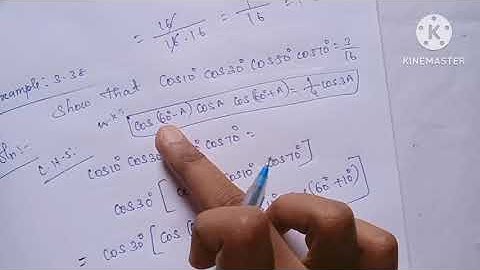 = 16/16·16 = 1/16
KINEMASTER
Example: 3.38
Show that cos10° cos30° cos50° cos70° = 3/16
W.K.T
cos(60°-A) cosA cos(60°+A) = 1/4 cos3A
Soln:
L.H.S:
cos10° cos30° cos70° =
cos30° [ cos10° cos70°]
= cos30° [cos (60°+10°)]